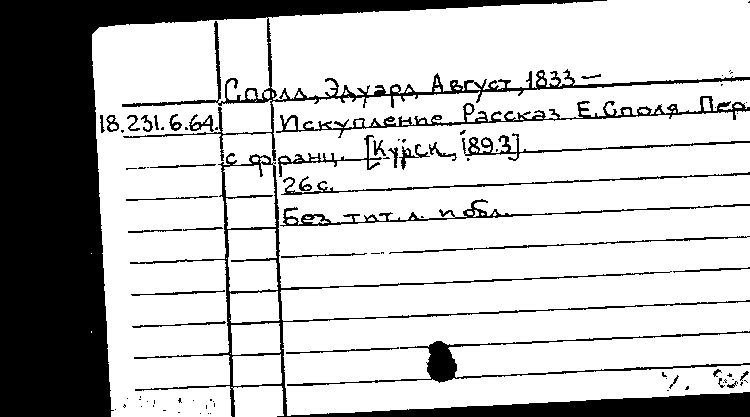 Сполл, Эдуард Август, 1833 —
18.231.6.64. Искупление. Рассказ Е. Споля. Пер.
с франц. [Курск, 1893].
26 с.
Без тит. л. и обл.